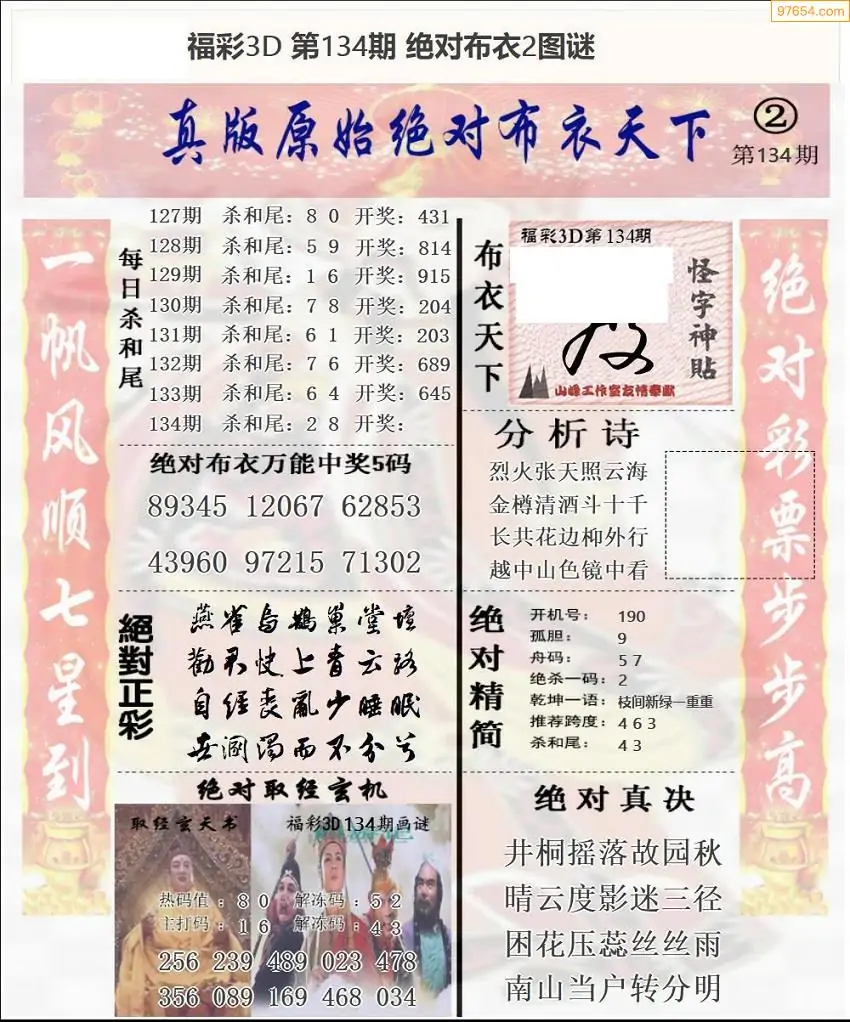 97654.com
福彩3D 第134期 绝对布衣2图谜
真版原始绝对布衣天下
②
第134期
一帆风顺七星到
每日杀和尾
127期 杀和尾：8 0 开奖：431
128期 杀和尾：5 9 开奖：814
129期 杀和尾：1 6 开奖：915
130期 杀和尾：7 8 开奖：204
131期 杀和尾：6 1 开奖：203
132期 杀和尾：7 6 开奖：689
133期 杀和尾：6 4 开奖：645
134期 杀和尾：2 8 开奖：
绝对布衣万能中奖5码
89345 12067 62853
43960 97215 71302
絕對正彩
燕雀乌鹊巢堂坛
勸君快上青云路
自经丧亂少睡眠
世溷浊而不分兮
绝对取经玄机
取经玄天书
福彩3D134期画谜
热码值：8 0 解冻码：5 2
主打码：1 6 解冻码：4 3
256 239 489 023 478
356 089 169 468 034
布衣天下
福彩3D第134期
怪字神贴
山峰工作室友情奉献
分析诗
烈火张天照云海
金樽清酒斗十千
长共花边柳外行
越中山色镜中看
绝对精简
开机号： 190
孤胆： 9
舟码： 5 7
绝杀一码： 2
乾坤一语： 枝间新绿一重重
推荐跨度： 4 6 3
杀和尾： 4 3
绝对真决
井桐摇落故园秋
晴云度影迷三径
困花压蕊丝丝雨
南山当户转分明
绝对彩票步步高